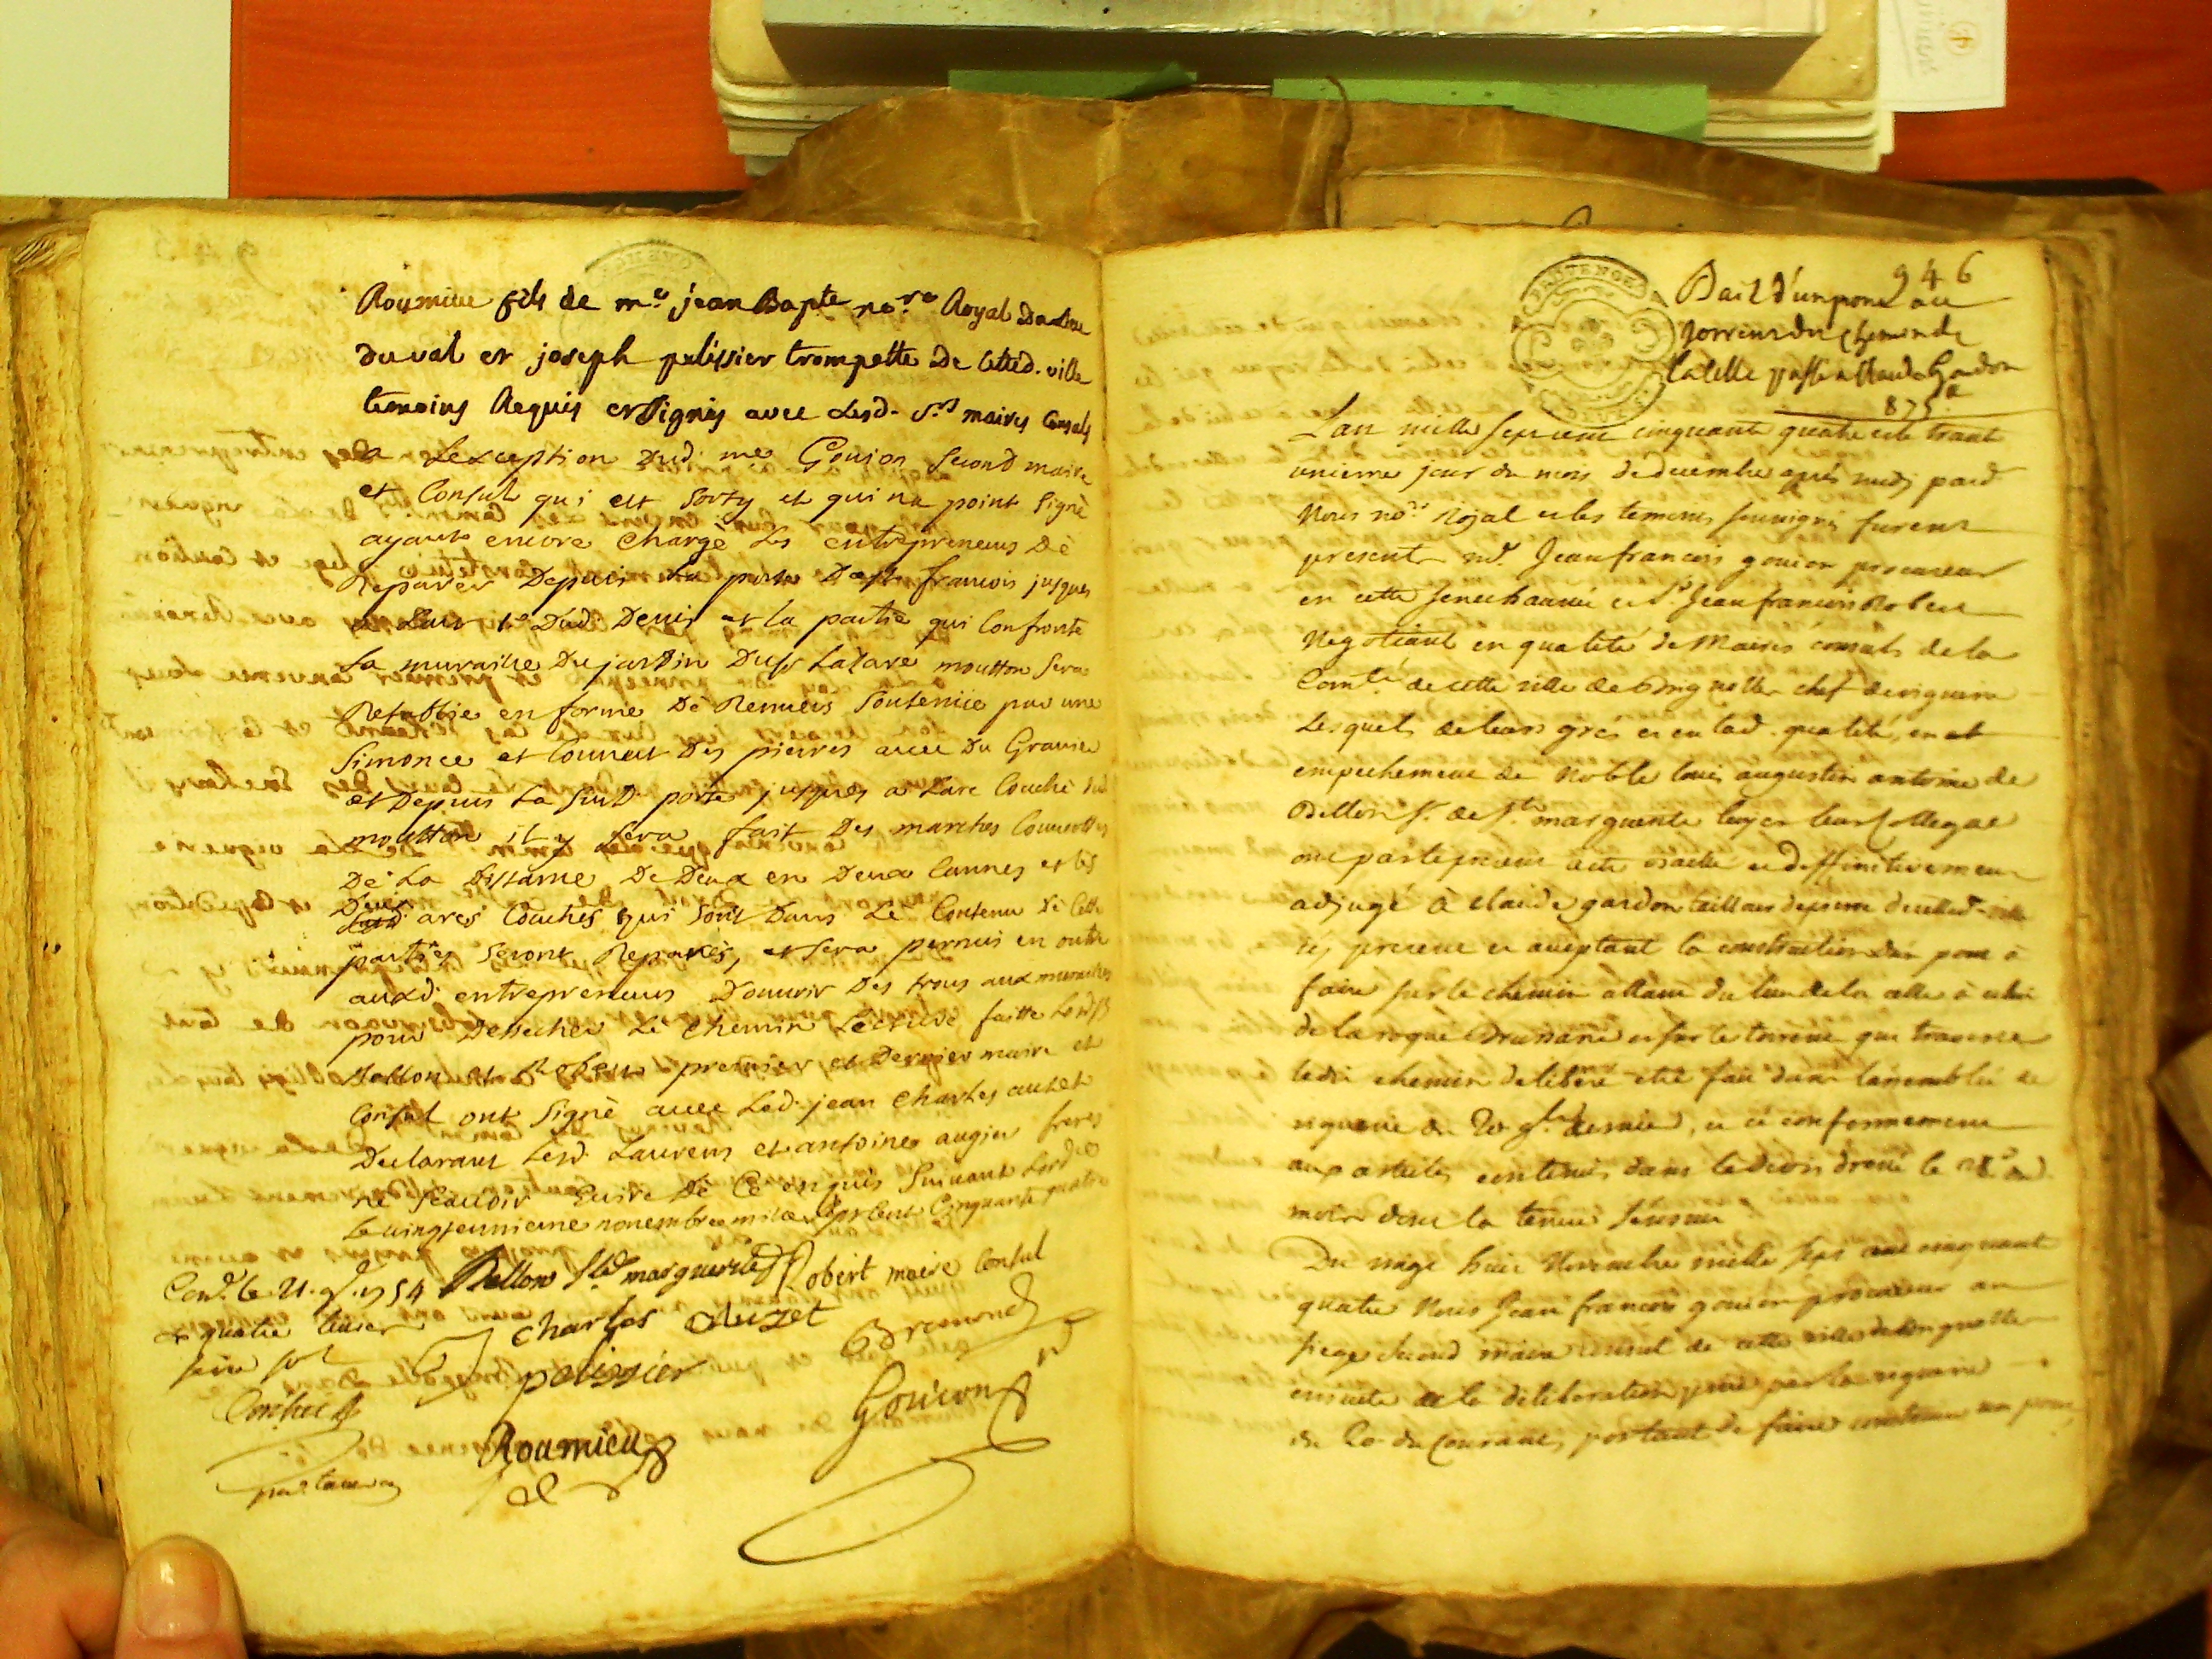 Roumieu fils de me. jean Bapte no.re Royal
du val et joseph pelissier trompette de cetted. ville
temoins Requis et signés avec lesd. srs. maires Consuls
a Lexception dud. me Goujon second maire
et Consul qui est sorty et qui na point signé
ayants encore Chargé les entrepreneurs de
Reparer Depuis La porte St françois jusques
a dud. Devis et la partie qui Confronte
La muraille Du jardin Du sr Lazare moutton sera
Retablie en forme de soutenüe par une
Simonce et Couvert Des pierres avec Du Gravier
et Depuis La susd. porte jusques a Larc Couché dud
moutton il y sera fait Des marches
De La Distance De Deux en Deux Cannes et les
Deux arcs Couchés qui sont Dans Le Contenu de Cette
partie seront Reparés, et sera permis en outre
auxd. entrepreneurs D'ouvrir Des trous aux murailles
pour Dessecher Le Chemin faitte
Bellon et Robert premier et Dernier maire et
Consul ont signé avec Led. jean Charles auzet
Declarant Lesd. Laurens et antoine augier freres
ne scavoir Ecrire De Ce enquis Suivant Lord.ce
Le vingt unieme novembre mille sept cent Cinquante quatre
Con.lé le 21. 9.bre 1754 Bellon ste. marguerite Robert maire Consul
quatre
Charles Auzet
seize sols
Bremond
pelissier
Goujon
Roumieu
946
Bail d'un pont au
torrent du chemin de
la celle passé a Claude Gardon
875
PROVENCE
L'an mille sept cent cinquante quatre et le trante
unieme jour du mois de decembre aprés midy pard.
Nous no.re Royal et les temoins soussignés furent
presents me. Jean francois goujon procureur
en cette senechaussée et sr. Jean francois Robert
Negotiant en qualité de Maires consuls de la
Com.té de cette ville de Brignolle chef de viguerie
Lesquels de leurs grés et en lad. qualité, en
empechement de Noble louis augustin antoine de
Bellon sr. de ste. marguerite leur Collegue
ont par le present acte et deffinitivement
adjugé à claude gardon tailleur de pierre de cetted. ville
icy present et aceptant la construction d'un pont à
faire sur le chemin allant du lieu de la celle à celui
de la roque Brussane et sur le torrent qui traverse
ledit chemin deliberé etre fait dans l'assemblée de
viguerie du 20 9.bre dernier, et ce conformement
aux articles contenus dans le devis dressé le 28e. du
mois dont la teneur s'ensuit
Du vingt huit Novembre mille sept cent cinquante
quatre Nous Jean francois goujon procureur au
siege second maire consul de cette ville de Brignolle
ensuite de la deliberation prise par la viguerie
du 20 du Courant, portant de faire construire un pont